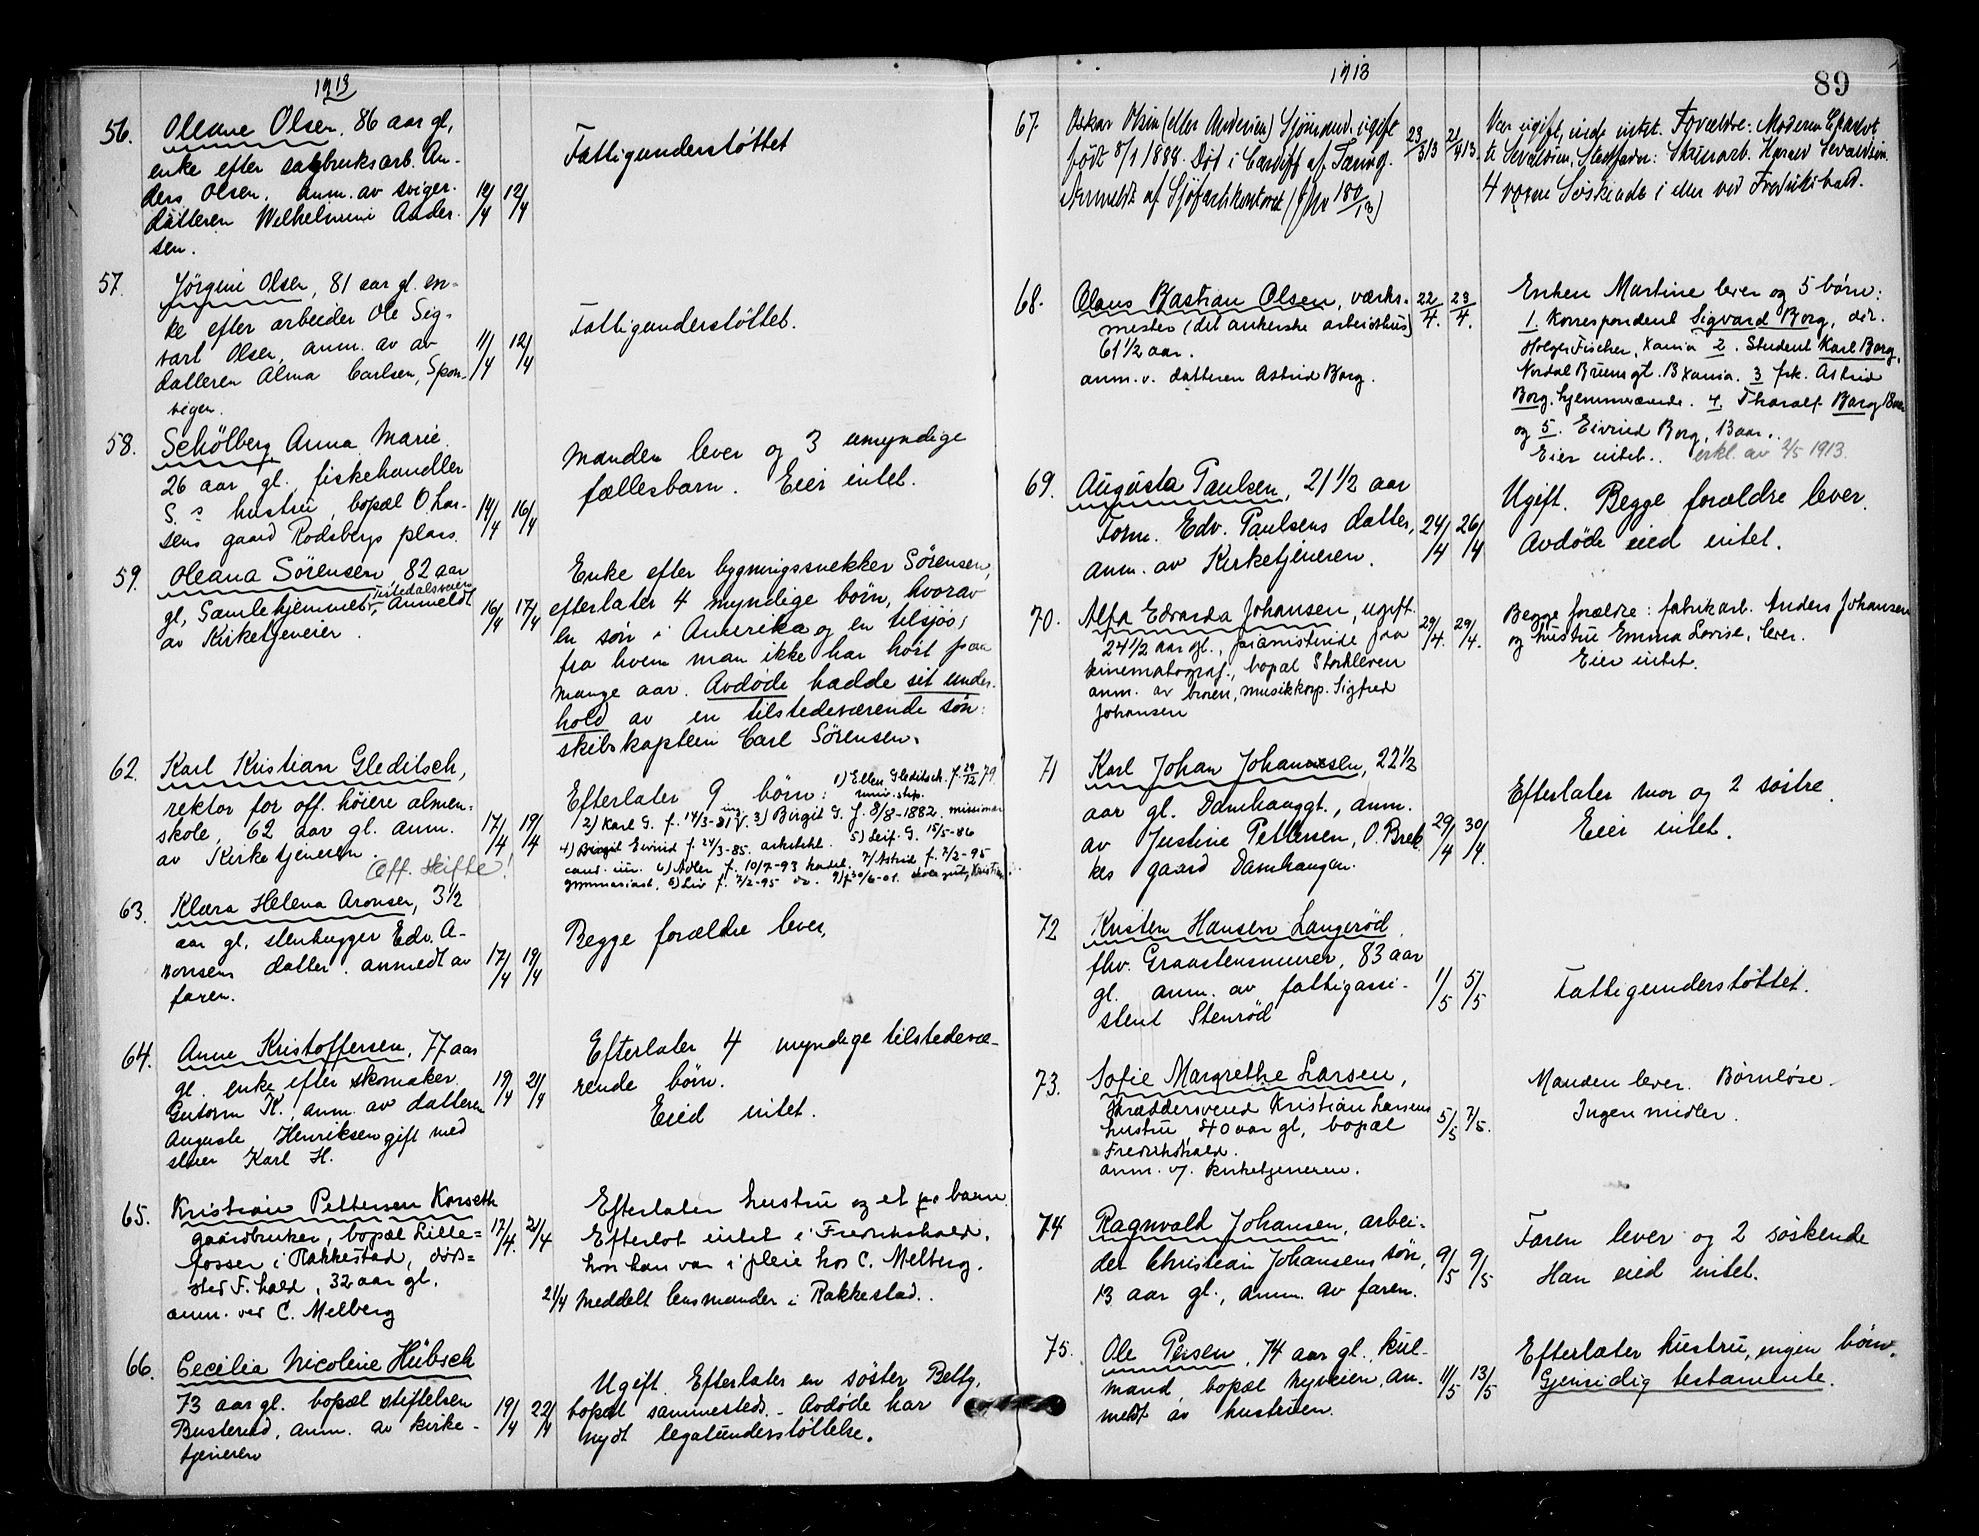 1913
56. Oleane Olsen, 86 aar gl,
enke efter sagbruksarb. An-
ders Olsen, anm. av sviger-
datteren Wilhelmine Ander-
sen.
12/4 12/4
Fattigunderstøttet
57. Jørgine Olsen, 81 aar gl. en-
ke efter arbeider Ole Sig-
vart Olsen, anm. av av
datteren Alma Carlsen, Spon-
vigen.
11/4 12/4
Fattigunderstøttet.
58. Schølberg Anna Marie
26 aar gl. fiskehandler
S. s hustru, bopæl O. Lar-
sens gaard Rødsbergs plass.
14/4 16/4
Manden lever og 3 umyndige
fællesbarn. Eier intet.
59. Oleana Sørensen, 82 aar
gl, Samlehjemmet, Tistedalsveien Anmeldt
av Kirketjeneren.
16/4 17/4
Enke efter bygningssnekker Sørensen,
efterlater 4 myndige børn, hvorav
en søn i Amerika og en tilsjøs,
fra hvem man ikke har hørt paa
mange aar. Avdøde hadde sit under-
hold av en tilstedeværende søn:
skibskaptein Carl Sørensen.
62. Karl Kristian Gleditsch,
rektor for off. høiere almen-
skole, 62 aar gl. anm.
av Kirketjeneren.
Off. skifte!
17/4 19/4
Efterlater 9 børn: 1) Ellen Gleditsch. f. 29/12 79.
univ. stip.
2) Karl G. f. 14/3-81 ing. 3) Birgit G. f. 8/8-1882. missionær
4) Eivind f. 24/3-85. arkitekt. 5) Leif G. 15/5-86
cand. min. 6) Adler f. 10/7-93 kadet. 7) Astrid f. 2/2-95
gymnasiast, 8) Liv f. 2/2-95 do. 9) f 30/6-01. skolegut, Kristian
63. Klara Helena Aronsen, 3 1/2
aar gl, stenhugger Edv. A-
ronsens datter. anmeldt av
faren.
17/4 19/4
Begge forældre lever,
64. Anne Kristoffersen, 77 aar
gl. enke efter skomaker
Gutorm K., anm. av datteren
Auguste Henriksen gift med
Karl H.
19/4 21/4
Efterlater 4 myndige tilstedevæ-
rende børn.
Eied intet.
65. Kristian Pettersen Korseth
gaardbruker, bopæl Lille-
fosser i Rakkestad, døds-
sted F.hald, 32 aar gl.
anm. ved C. Melberg
17/4. 21/4
Efterlater hustru og et barn
Efterlot intet i Fredrikshald,
hvor han var i pleie hos C. Melberg.
21/4 Meddelt lensmanden i Rakkestad..
66. Cecilia Nicoline Hübsch
73 aar gl. bopæl stiftelsen
Busterud, anm. av kirke-
tjeneren
19/4 22/4
Ugift. Efterlater en søster Betty,
bopæl sammesteds. - Avdøde har
nydt legatunderstøttelse.
1913
89
67. Oskar Olsen (eller Andersen) Sjømand. ugift
født 8/1 1888. Død i Cardiff af Tæring.
Anmeldt af Sjøfartskontoret (j.no 180/13)
23/3 13 21/4 13.
Var ugift, eiede intet. Forældre: Moderen
Sevaldsen, Stedfader: Stenarb. Harald Sevaldsen.
4 voxne Søskende i eller ved Fredrikshald.
68. Olaus Bastian Olsen, værks-
mester (det ankerske arbeidshus)
61 1/2 aar.
anm. v. datteren Astrid Borg.
22/4. 23/4.
Enken Martine lever og 5 børn:
1. Korrespondent Sigvard Borg, adr.
Holger Fischer, Xania 2. Student Karl Borg,
Nordal Bruns gt. 13 Xania. 3 frk. Astrid
Borg. hjemmeværende. 4. Tharalf Borg 18 aar
og 5. Eivind Borg, 13 aar.
Eier intet. erkl. av 2/5 1913.
69. Augusta Paulsen, 21 1/2 aar
Form. Edv. Paulsens datter,
anm. av Kirketjeneren.
24/4 26/4
Ugift. Begge forældre lever.
Avdøde eied intet.
70. Alfa Edvarda Johansen, ugift.
24 1/2 aar gl., pianistinde paa
kinematograf., bopæl Storkleven
anm. av broren, musikkorp. Sigfred
Johansen
29/4. 29/4.
Begge forældre: fabrikarb. Anders Johansen
og hustru Emma Lovise, lever.
Eier intet.
71 Karl Johan Johannesen, 22 1/2
aar gl. Damhauggt., anm.
av Justine Pettersen, O. Brek-
kes gaard Damhaugen.
29/4 30/4.
Efterlater mor og 2 søstre.
Eier intet.
72 Kristen Hansen Langerød.
fhv. Graastensmurer, 83 aar
gl. anm. av fattigassi-
stent Stenrød
1/5 5/5
Fattigunderstøttet.
73. Sofie Margrethe Larsen,
Skræddersvend Kristian Larsens
hustru 40 aar gl, bopæl
Fredrikshald.
anm. v/ kirketjeneren.
5/5 7/5.
Manden lever. Børnløse.
Ingen midler.
74 Ragnvald Johansen, arbei-
der Christian Johansens søn,
13 aar gl., anm. av faren.
9/5 9/5
Faren lever og 2 søskende
Han eied intet.
75. Ole Persen, 74 aar gl., kul-
mand, bopæl Nyveien, an-
meldt av hustruen.
11/5 13/5
Efterlater hustru, ingen børn.
Gjensidig testamente.